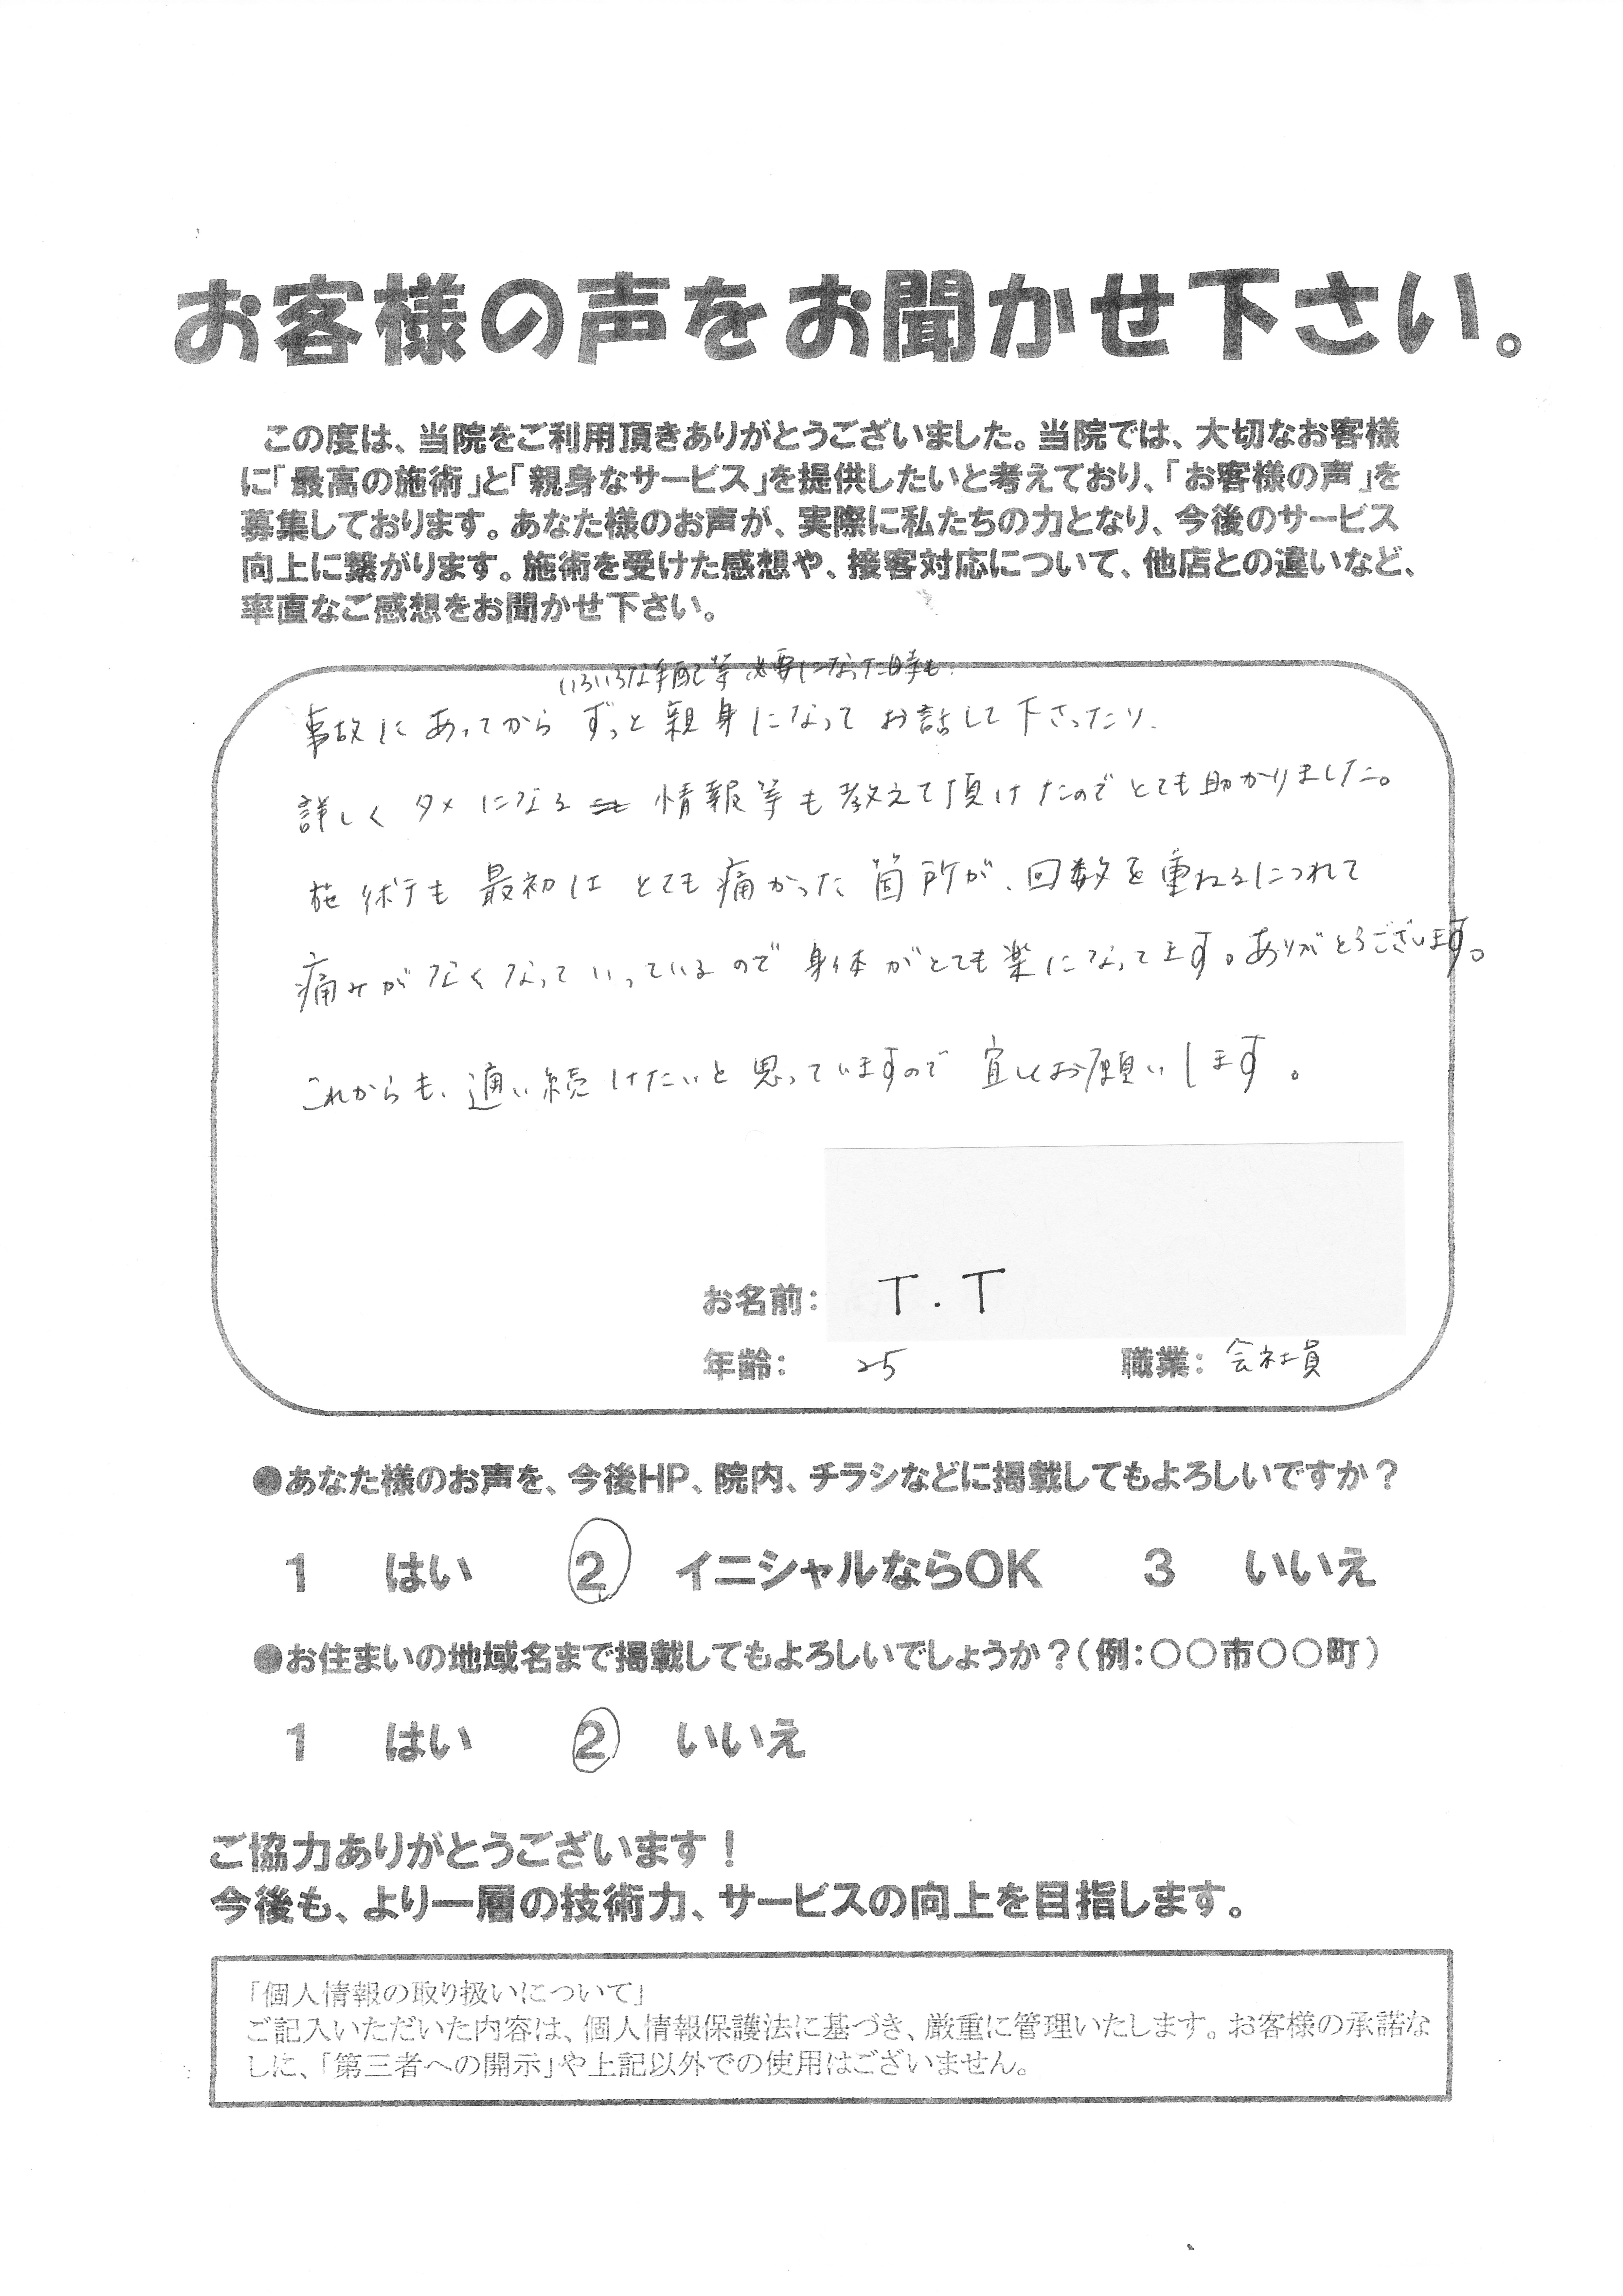 お客様の声をお聞かせ下さい。
この度は、当院をご利用頂きありがとうございました。当院では、大切なお客様
に「最高の施術」と「親身なサービス」を提供したいと考えており、「お客様の声」を
募集しております。あなた様のお声が、実際に私たちの力となり、今後のサービス
向上に繋がります。施術を受けた感想や、接客対応について、他店との違いなど、
率直なご感想をお聞かせ下さい。
いろいろな手配等必要になった時も
事故にあってからずっと親身になってお話して下さったり、
詳しくタメになる情報等も教えて頂けたのでとても助かりました。
施術も最初はとても痛かった箇所が、回数を重ねるにつれて
痛みがなくなっていっているので身体がとても楽になってます。ありがとうございます。
これからも、通い続けたいと思っていますので宜しくお願いします。
お名前： T.T
年齢： 25 職業： 会社員
●あなた様のお声を、今後HP、院内、チラシなどに掲載してもよろしいですか？
1 はい 2 イニシャルならOK 3 いいえ
●お住まいの地域名まで掲載してもよろしいでしょうか？（例：〇〇市〇〇町）
1 はい 2 いいえ
ご協力ありがとうございます！
今後も、より一層の技術力、サービスの向上を目指します。
「個人情報の取り扱いについて」
ご記入いただいた内容は、個人情報保護法に基づき、厳重に管理いたします。お客様の承諾な
しに、「第三者への開示」や上記以外での使用はございません。